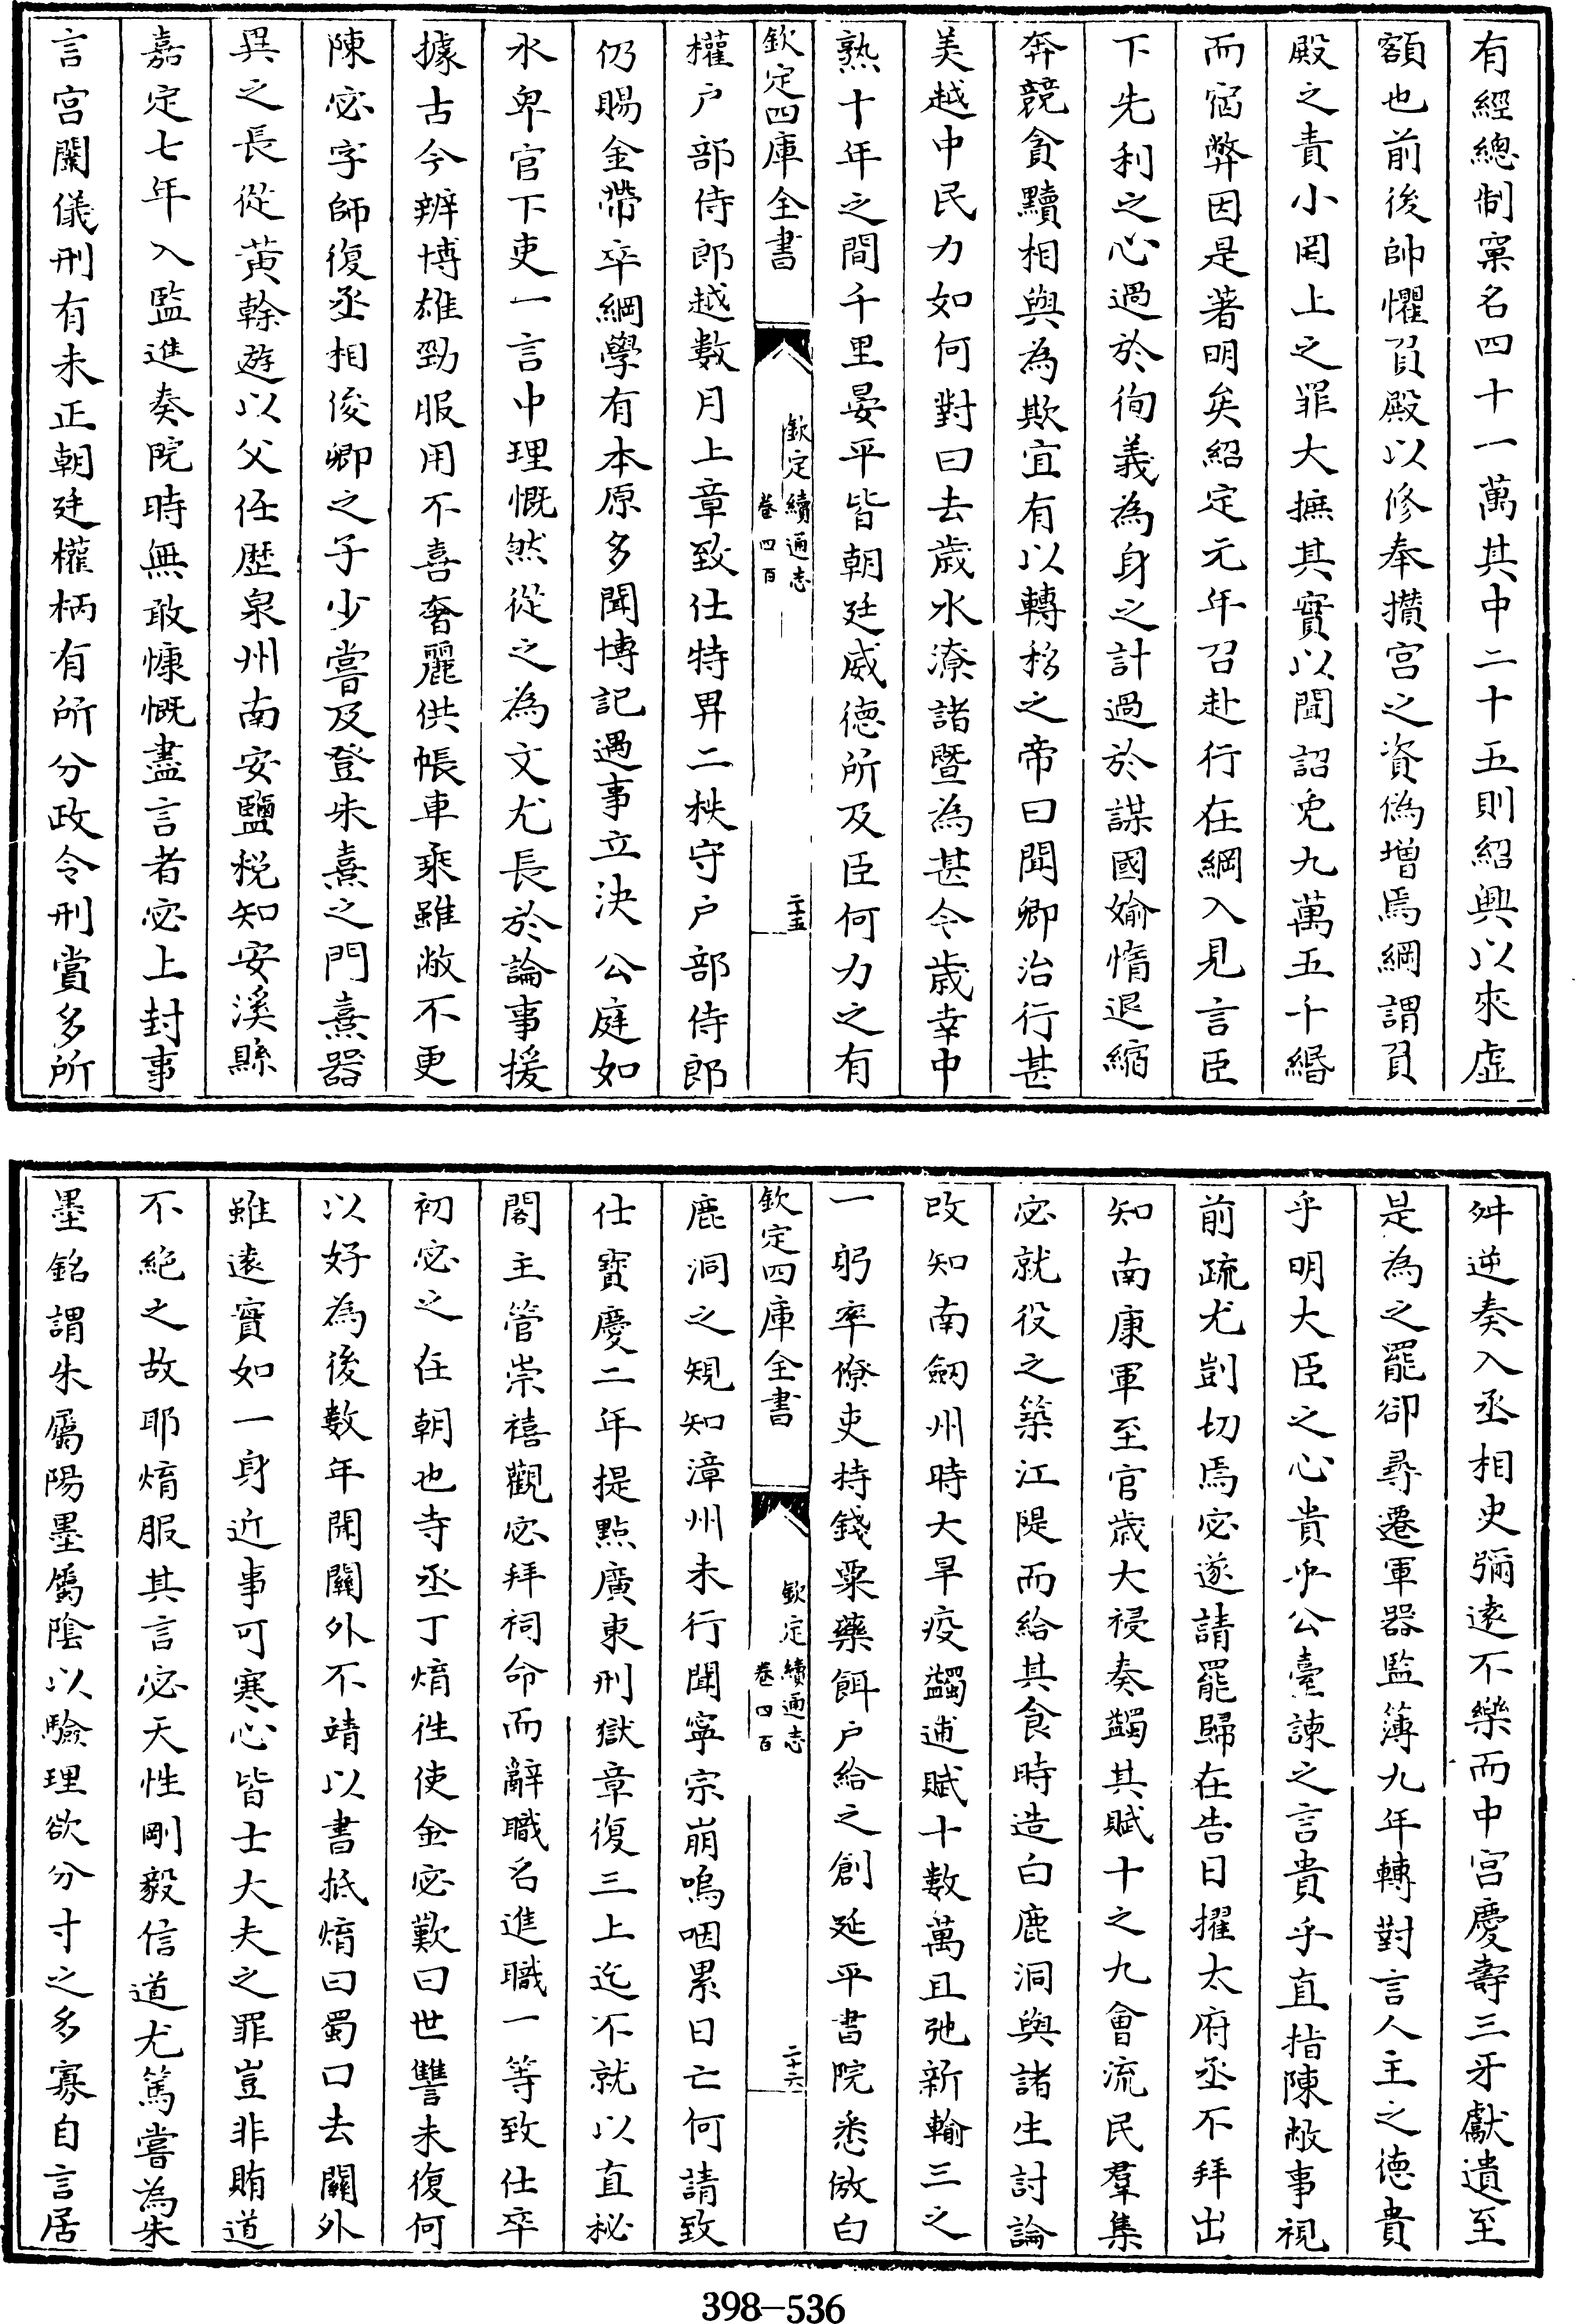 有經總制窠名四十一萬其中二十五則紹興以來虛
額也前後帥懼負殿以修奉攢宮之資偽增焉綱謂負
殿之責小罔上之罪大摭其實以聞詔免九萬五千緡
而宿弊因是著明矣紹定元年召赴行在綱入見言臣
下先利之心過於徇義為身之計過於謀國媮惰退縮
奔競貪黷相與為欺宜有以轉移之帝曰聞卿治行甚
美越中民力如何對曰去歲水潦諸暨為甚今歲幸中
熟十年之間千里晏平皆朝廷威德所及臣何力之有
欽定四庫全書
欽定續通志
卷四百
二十五
權户部侍郎越數月上章致仕特畀二秩守户部侍郎
仍賜金帶卒綱學有本原多聞博記遇事立決公庭如
水卑官下吏一言中理慨然從之為文尤長於論事援
據古今辨博雄勁服用不喜奢麗供帳車乘雖敝不更
陳宓字師復丞相俊卿之子少嘗及登朱熹之門熹器
異之長從黄榦遊以父任歷泉州南安鹽税知安溪縣
嘉定七年入監進奏院時無敢慷慨盡言者宓上封事
言宮閫儀刑有未正朝廷權柄有所分政令刑賞多所
舛逆奏入丞相史彌遠不樂而中宮慶壽三牙獻遺至
是為之罷卻尋遷軍器監簿九年轉對言人主之德貴
乎明大臣之心貴乎公臺諫之言貴乎直指陳敝事視
前疏尤剴切焉宓遂請罷歸在告日擢太府丞不拜出
知南康軍至官歲大祲奏蠲其賦十之九會流民羣集
宓就役之築江隄而給其食時造白鹿洞與諸生討論
改知南劔州時大旱疫蠲逋賦十數萬且弛新輸三之
一躬率僚吏持錢粟藥餌户給之創延平書院悉倣白
欽定四庫全書
欽定續通志
卷四百
二十六
鹿洞之規知漳州未行聞寧宗崩嗚咽累日亡何請致
仕寶慶二年提點廣東刑獄章復三上迄不就以直秘
閣主管崇禧觀宓拜祠命而辭職名進職一等致仕卒
初宓之在朝也寺丞丁焴徃使金宓歎曰世讐未復何
以好為後數年聞關外不靖以書抵焴曰蜀口去關外
雖遠實如一身近事可寒心皆士大夫之罪豈非賄道
不絶之故耶焴服其言宓天性剛毅信道尤篤嘗為朱
墨銘謂朱屬陽墨屬陰以驗理欲分寸之多寡自言居
398–536